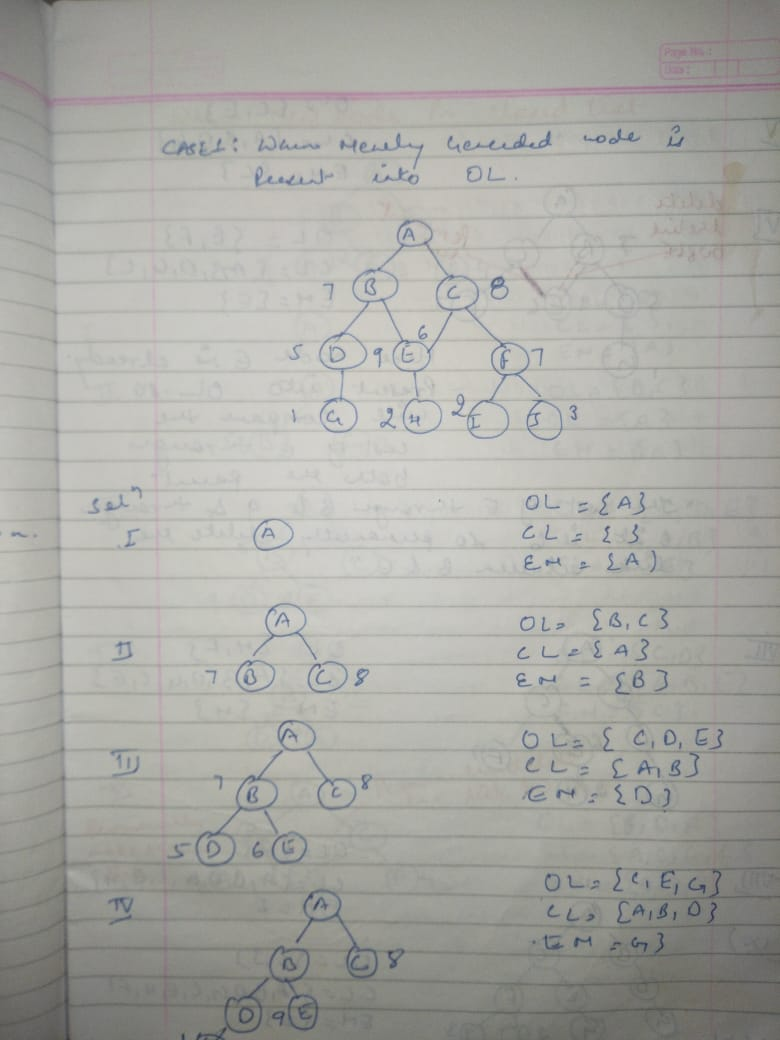 Page No.:
Date:
CASE1: When Newly Generated node is
Present into OL.
A
7 B C 8
6
5 D 9 E F 7
1 G 2 H 2 I J 3
Solⁿ
I A
OL = {A}
CL = { }
EN = {A)
II A
7 B C 8
OL = {B, C}
CL = {A}
EN = {B}
III A
7 B C 8
5 D 6 E
OL = { C, D, E}
CL = {A, B}
EN = {D}
IV A
B C 8
D 9 E
OL = {C, E, G}
CL = {A, B, D}
EN = G}